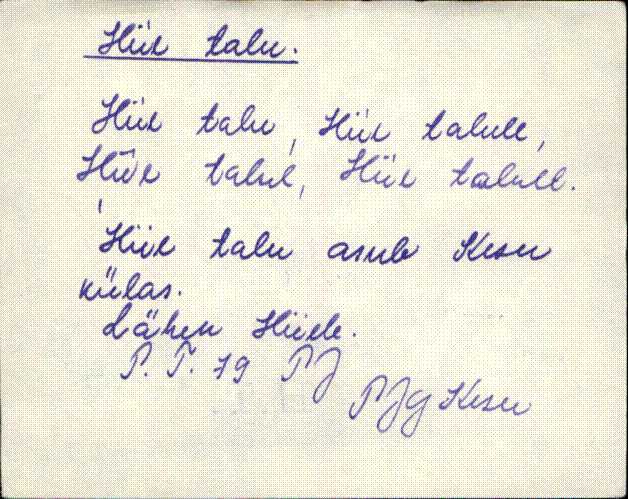 Hiie talu.
Hiie talu, Hiie talule,
Hiie talul, Hiie talule.
Hiie talu asub Kesu
külas.
Lähen Hiiele.
P. T. 79 PJ
PJG Kesu